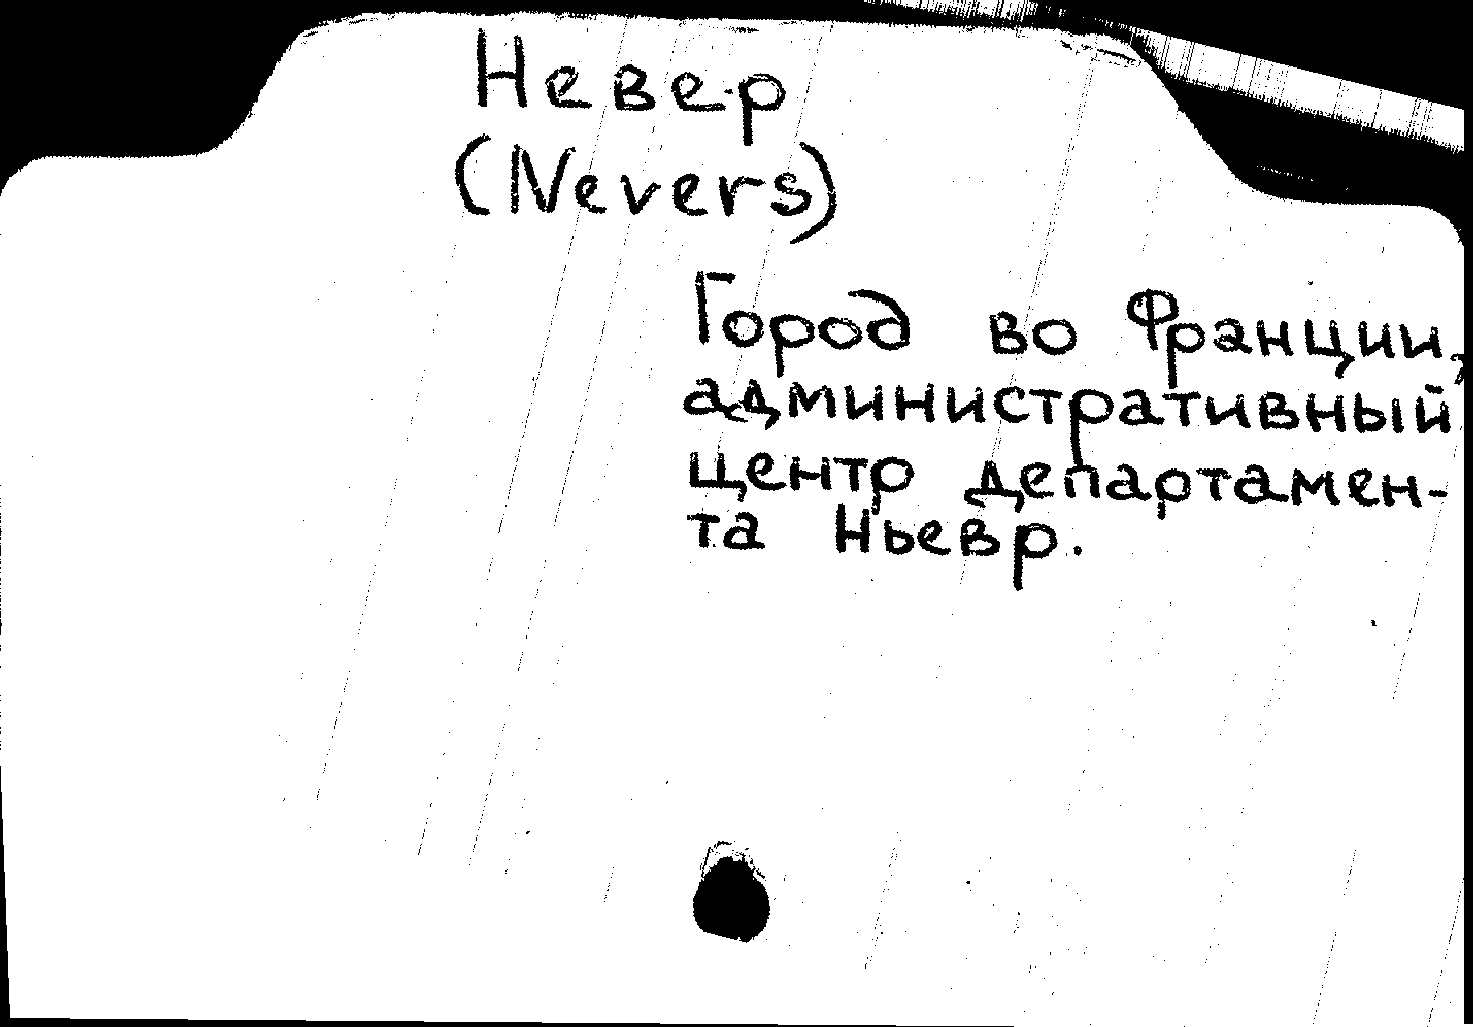 Невер
(Nevers)
Город во Франции,
административный
центр департамен-
та Ньевр.